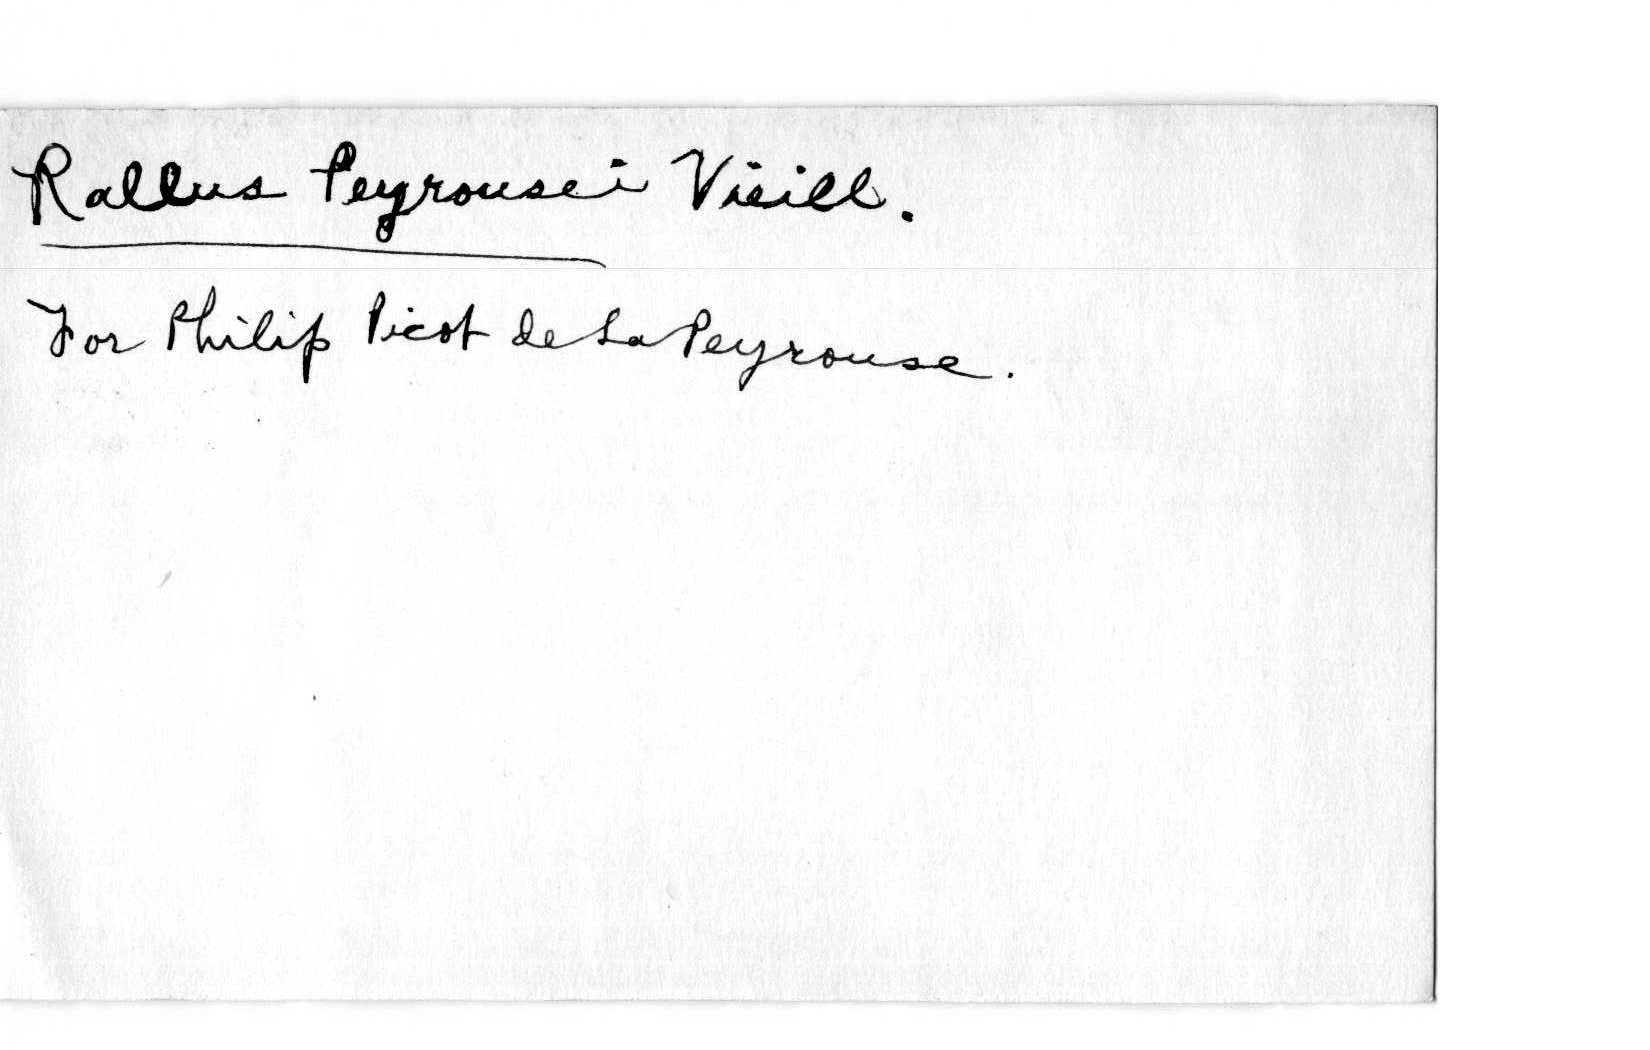 Rallus Peyrousei Vieill.
For Philip Picot de La Peyrouse.